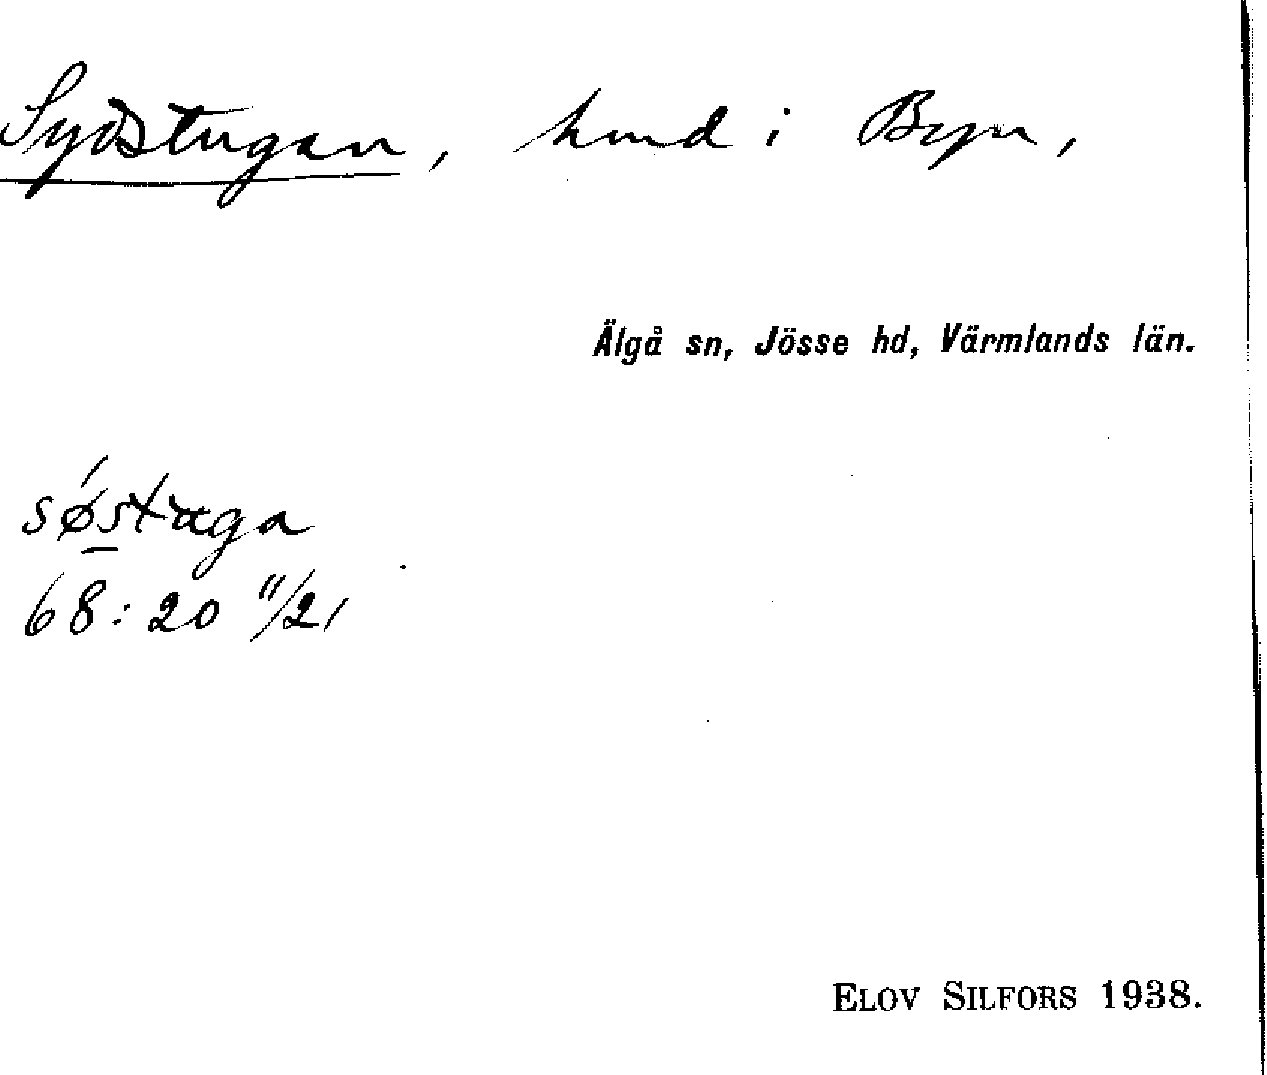 Sydstugan, hmd i Byn,
Älgå sn, Jösse hd, Värmlands län.
søstuga
68:20 11/21
ELOV SILFORS 1938.